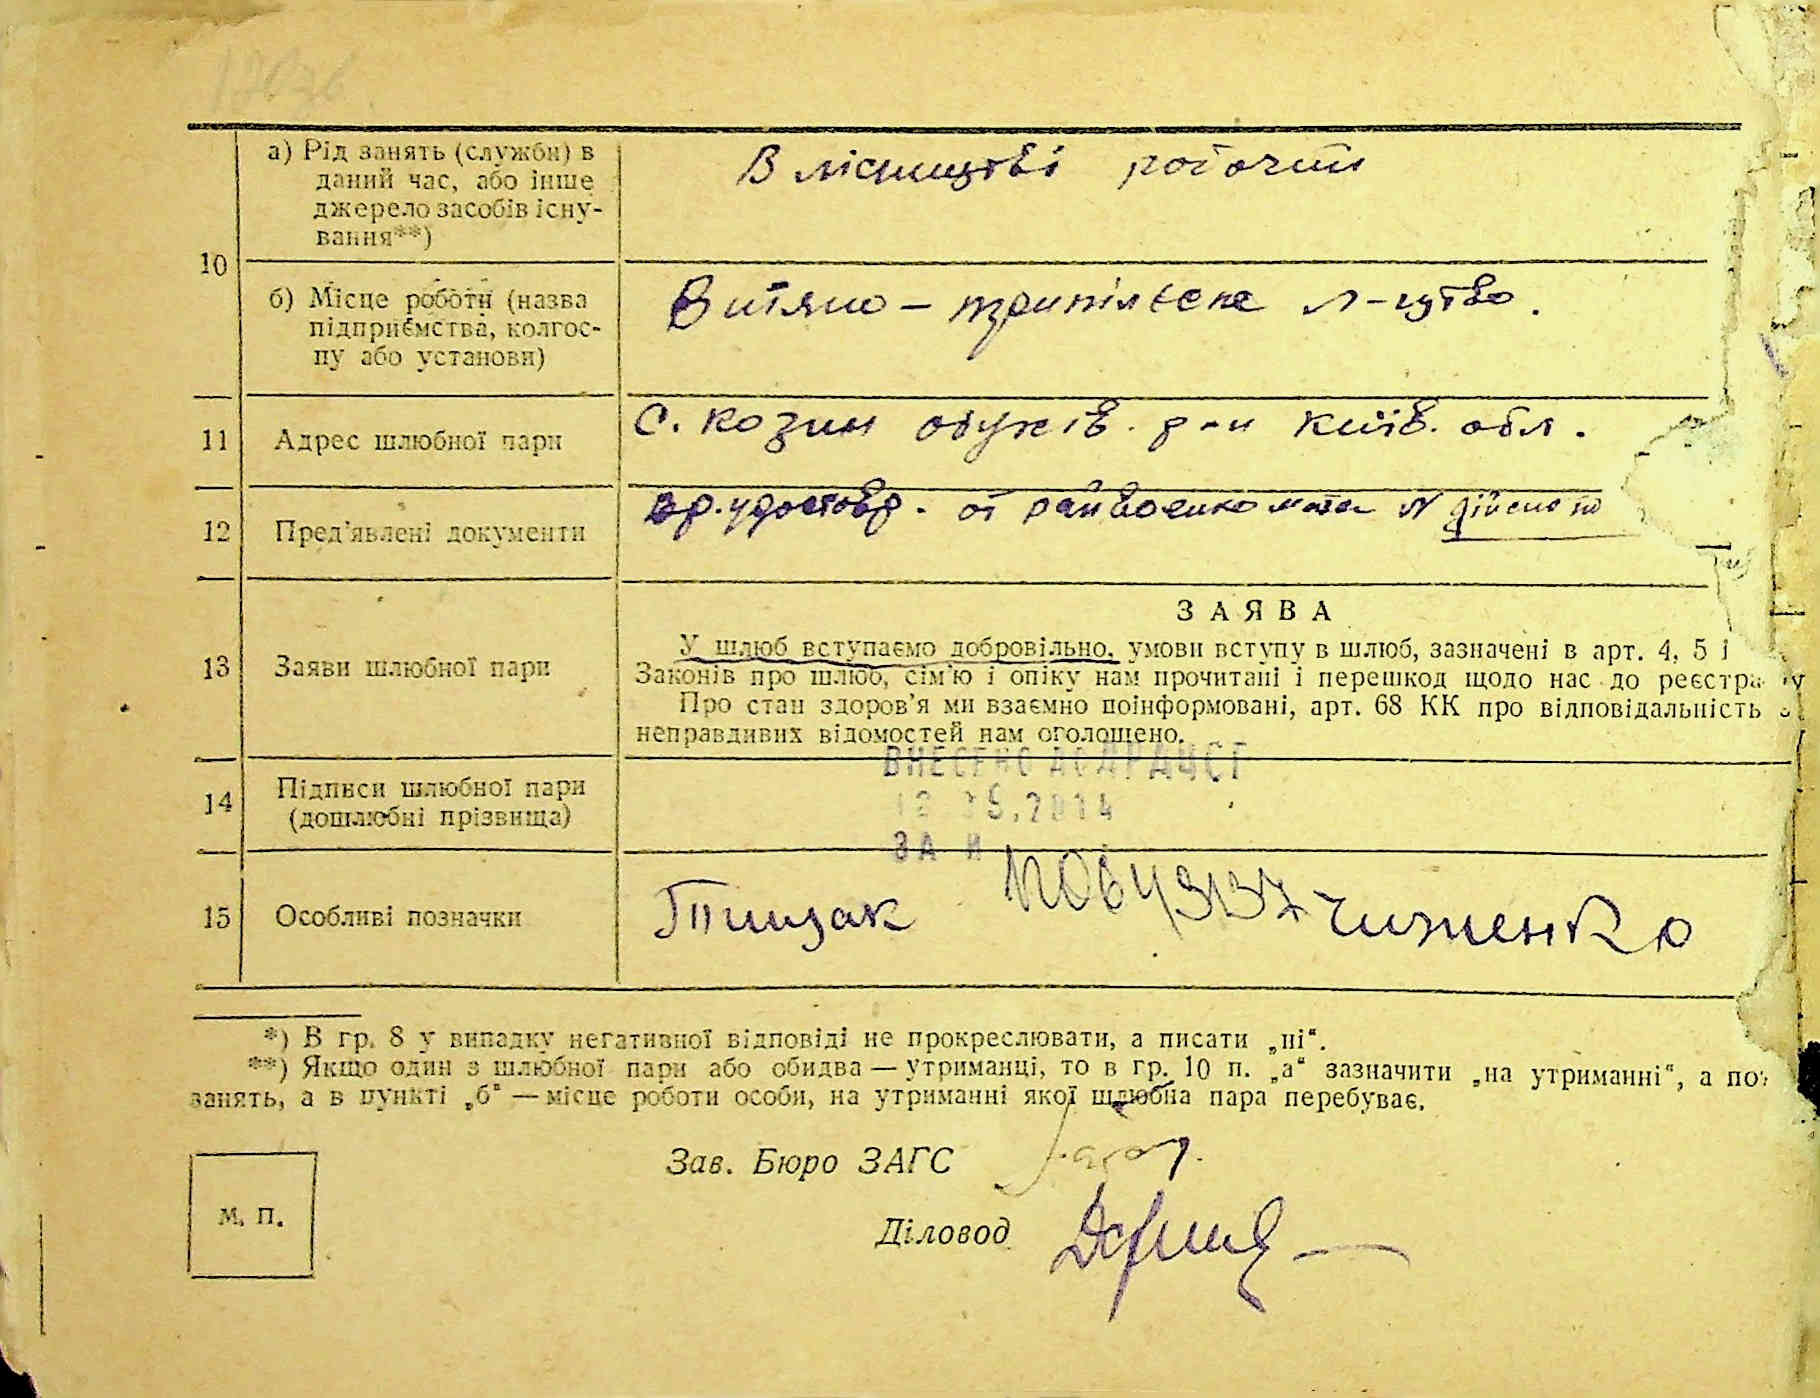 а) Рід занять (служби) в
даний час, або інше
джерело засобів існу-
вання**)
В лісництві робочий
10
б) Місце роботи (назва
підприємства, колгос-
пу або установи)
л-цтво.
11 Адрес шлюбної пари
с. Козин обухів. р-н Київ. обл.
12 Пред'явлені документи
вр. удостовр. от райвоенкомата N
13 Заяви шлюбної пари
ЗАЯВА
У шлюб вступаємо добровільно, умови вступу в шлюб, зазначені в арт. 4, 5 і
Законів про шлюб, сім'ю і опіку нам прочитані і перешкод щодо нас до реєстра
Про стан здоров'я ми взаємно поінформовані, арт. 68 КК про відповідальність з
неправдивих відомостей нам оголошено.
ВНЕСЕНО ДО ДРАЦСГ
14 Підписи шлюбної пари
(дошлюбні прізвища)
ЗА N
15 Особливі позначки
Тищак Чиженко
*) В гр. 8 у випадку негативної відповіді не прокреслювати, а писати „ні“.
**) Якщо один з шлюбної пари або обидва — утриманці, то в гр. 10 п. „а“ зазначити „на утриманні“, а по
занять, а в пункті „б“ — місце роботи особи, на утриманні якої шлюбна пара перебуває.
Зав. Бюро ЗАГС
м. п.
Діловод